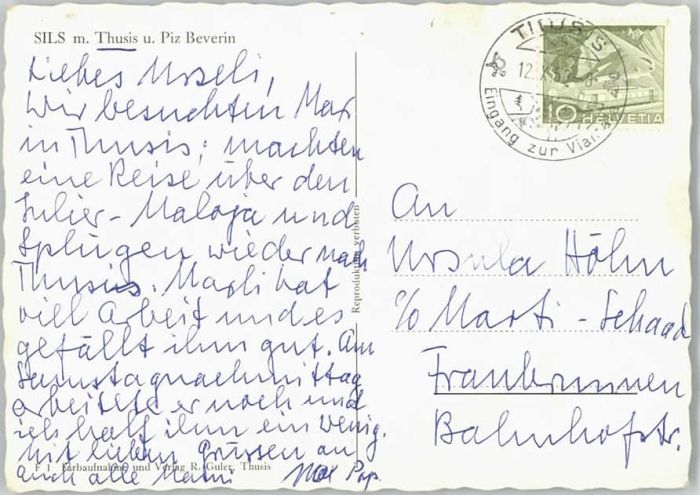 SILS m. Thusis u. Piz Beverin
Liebes Urseli,
Wir besuchten Max
in Thusis; machten
eine Reise über den
Julier-Maloja und
Splügen wieder nach
Thusis. Maxli hat
viel Arbeit und es
gefällt ihm gut. Am
Samstagnachmittag
arbeitete er noch und
ich half ihm ein wenig.
Mit lieben Grüssen an
auch alle Mami
F 1 Farbaufnahme und Verlag R. Guler, Thusis
Reproduktion verboten
THUSIS
Eingang zur Via
10 HELVETIA
An
Ursula Höhn
c/o Marti-Schaad
Fraubrunnen
Bahnhofstr.